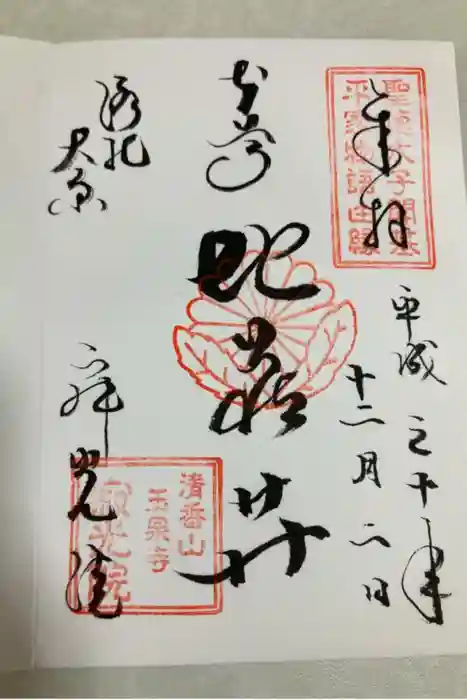 聖徳太子開基
平家物語由縁
奉拝
平成三十年
十二月二日
本尊
地蔵𦬇
洛北
大原
寂光院
清香山
玉泉寺
寂光院